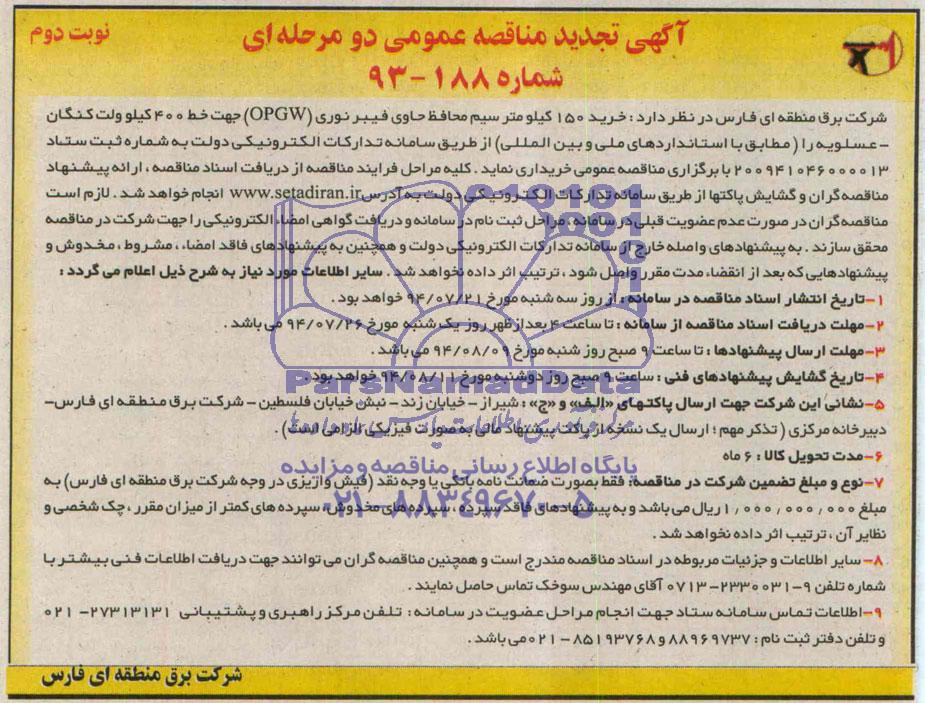 آگهی تجدید مناقصه عمومی دو مرحله ای
نوبت دوم
شماره ۱۸۸-۹۳
شرکت برق منطقه ای فارس در نظر دارد : خرید ۱۵۰ کیلو متر سیم محافظ حاوی فیبر نوری (OPGW) جهت خط ۴۰۰ کیلو ولت کنگان
- عسلویه را ( مطابق با استانداردهای ملی و بین المللی ) از طریق سامانه تدارکات الکترونیکی دولت به شماره ثبت ستاد
۲۰۰۹۴۱۰۴۶۰۰۰۰۱۳ با برگزاری مناقصه عمومی خریداری نماید . کلیه مراحل فرایند مناقصه از دریافت اسناد مناقصه ، ارائه پیشنهاد
مناقصه گران و گشایش پاکتها از طریق سامانه تدارکات الکترونیکی دولت به آدرس www.setadiran.ir انجام خواهد شد . لازم است
مناقصه گران در صورت عدم عضویت قبلی در سامانه ، مراحل ثبت نام در سامانه و دریافت گواهی امضاء الکترونیکی را جهت شرکت در مناقصه
محقق سازند . به پیشنهادهای واصله خارج از سامانه تدارکات الکترونیکی دولت و همچنین به پیشنهادهای فاقد امضاء ، مشروط ، مخدوش و
پیشنهادهایی که بعد از انقضاء مدت مقرر واصل شود ، ترتیب اثر داده نخواهد شد . سایر اطلاعات مورد نیاز به شرح ذیل اعلام می گردد :
۱-تاریخ انتشار اسناد مناقصه در سامانه : از روز سه شنبه مورخ ۹۴/۰۷/۲۱ خواهد بود .
۲-مهلت دریافت اسناد مناقصه از سامانه : تا ساعت ۴ بعدازظهر روز یک شنبه مورخ ۹۴/۰۷/۲۶ می باشد .
۳-مهلت ارسال پیشنهادها : تا ساعت ۹ صبح روز شنبه مورخ ۹۴/۰۸/۰۹ می باشد .
۴-تاریخ گشایش پیشنهادهای فنی : ساعت ۹ صبح روز دوشنبه مورخ ۹۴/۰۸/۱۱ خواهد بود
ParsNamadData
۵-نشانی این شرکت جهت ارسال پاکتهای «الف» و «ج» : شیراز - خیابان زند - نبش خیابان فلسطین - شرکت برق منطقه ای فارس-
دبیرخانه مرکزی ( تذکر مهم : ارسال یک نسخه از پاکت پیشنهاد مالی به صورت فیزیکی الزامی است ) .
۶-مدت تحویل کالا : ۶ ماه
پایگاه اطلاع رسانی مناقصه و مزایده
۷-نوع و مبلغ تضمین شرکت در مناقصه: فقط بصورت ضمانت نامه بانکی یا وجه نقد (فیش واریزی در وجه شرکت برق منطقه ای فارس) به
۰۲۱-۸۸۳۴۹۶۷۰-۵
مبلغ ۱٫۰۰۰٫۰۰۰٫۰۰۰ ریال می باشد و به پیشنهادهای فاقد سپرده ، سپرده های مخدوش ، سپرده های کمتر از میزان مقرر ، چک شخصی و
نظایر آن ، ترتیب اثر داده نخواهد شد .
۸- سایر اطلاعات و جزئیات مربوطه در اسناد مناقصه مندرج است و همچنین مناقصه گران می توانند جهت دریافت اطلاعات فنی بیشتر با
شماره تلفن ۹-۲۳۳۰۰۳۱-۰۷۱۳ آقای مهندس سوخک تماس حاصل نمایند .
۹-اطلاعات تماس سامانه ستاد جهت انجام مراحل عضویت در سامانه : تلفن مرکز راهبری و پشتیبانی ۲۷۳۱۳۱۳۱-۰۲۱
و تلفن دفتر ثبت نام : ۸۸۹۶۹۷۳۷ و ۸۵۱۹۳۷۶۸-۰۲۱ می باشد .
شرکت برق منطقه ای فارس